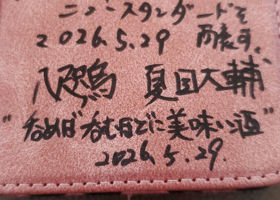 ニュースタンダードを
2026.5.29 再表す。
八咫烏 夏田大輔
"呑めば呑むほどに美味い酒"
2026.5.29.